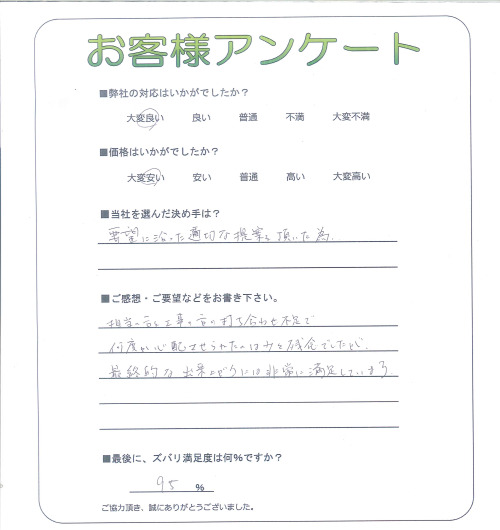 お客様アンケート
■弊社の対応はいかがでしたか？
大変良い 良い 普通 不満 大変不満
■価格はいかがでしたか？
大変安い 安い 普通 高い 大変高い
■当社を選んだ決め手は？
要望に沿った適切な提案を頂いた為。
■ご感想・ご要望などをお書き下さい。
担当の方と工事の方の打ち合わせ不足で
何度か心配させられたのは少々残念でしたが、
最終的な出来上がりには非常に満足しています。
■最後に、ズバリ満足度は何%ですか？
95 %
ご協力頂き、誠にありがとうございました。